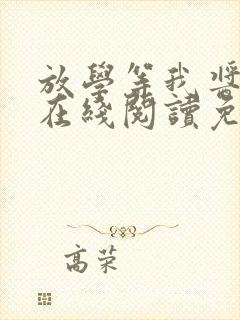 放學等我酱
在綫閱讀免
高荣